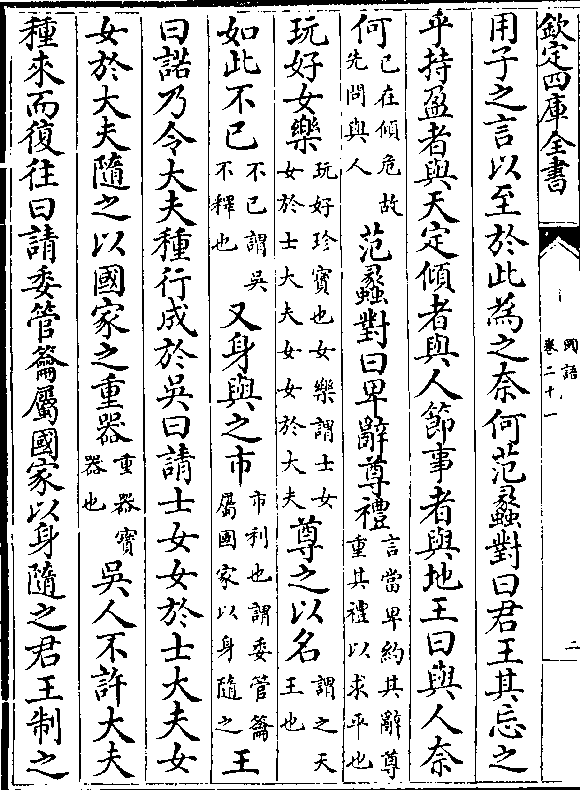 欽定四庫全書
國語
卷二十一
二
用子之言以至於此為之奈何范蠡對曰君王其忘之
乎持盈者與天定傾者與人節事者與地王曰與人奈
何已在傾危故先問與人范蠡對曰卑辭尊禮言當卑約其辭尊重其禮以求平也
玩好女樂玩好珍寶也女樂謂士女女於士大夫女女於大夫尊之以名謂之天王也
如此不已不已謂吳不釋也又身與之市市利也謂委管籥屬國家以身隨之王
曰諾乃令大夫種行成於吳曰請士女女於士大夫女
女於大夫隨之以國家之重器重器寶器也吳人不許大夫
種來而復往曰請委管籥屬國家以身隨之君王制之